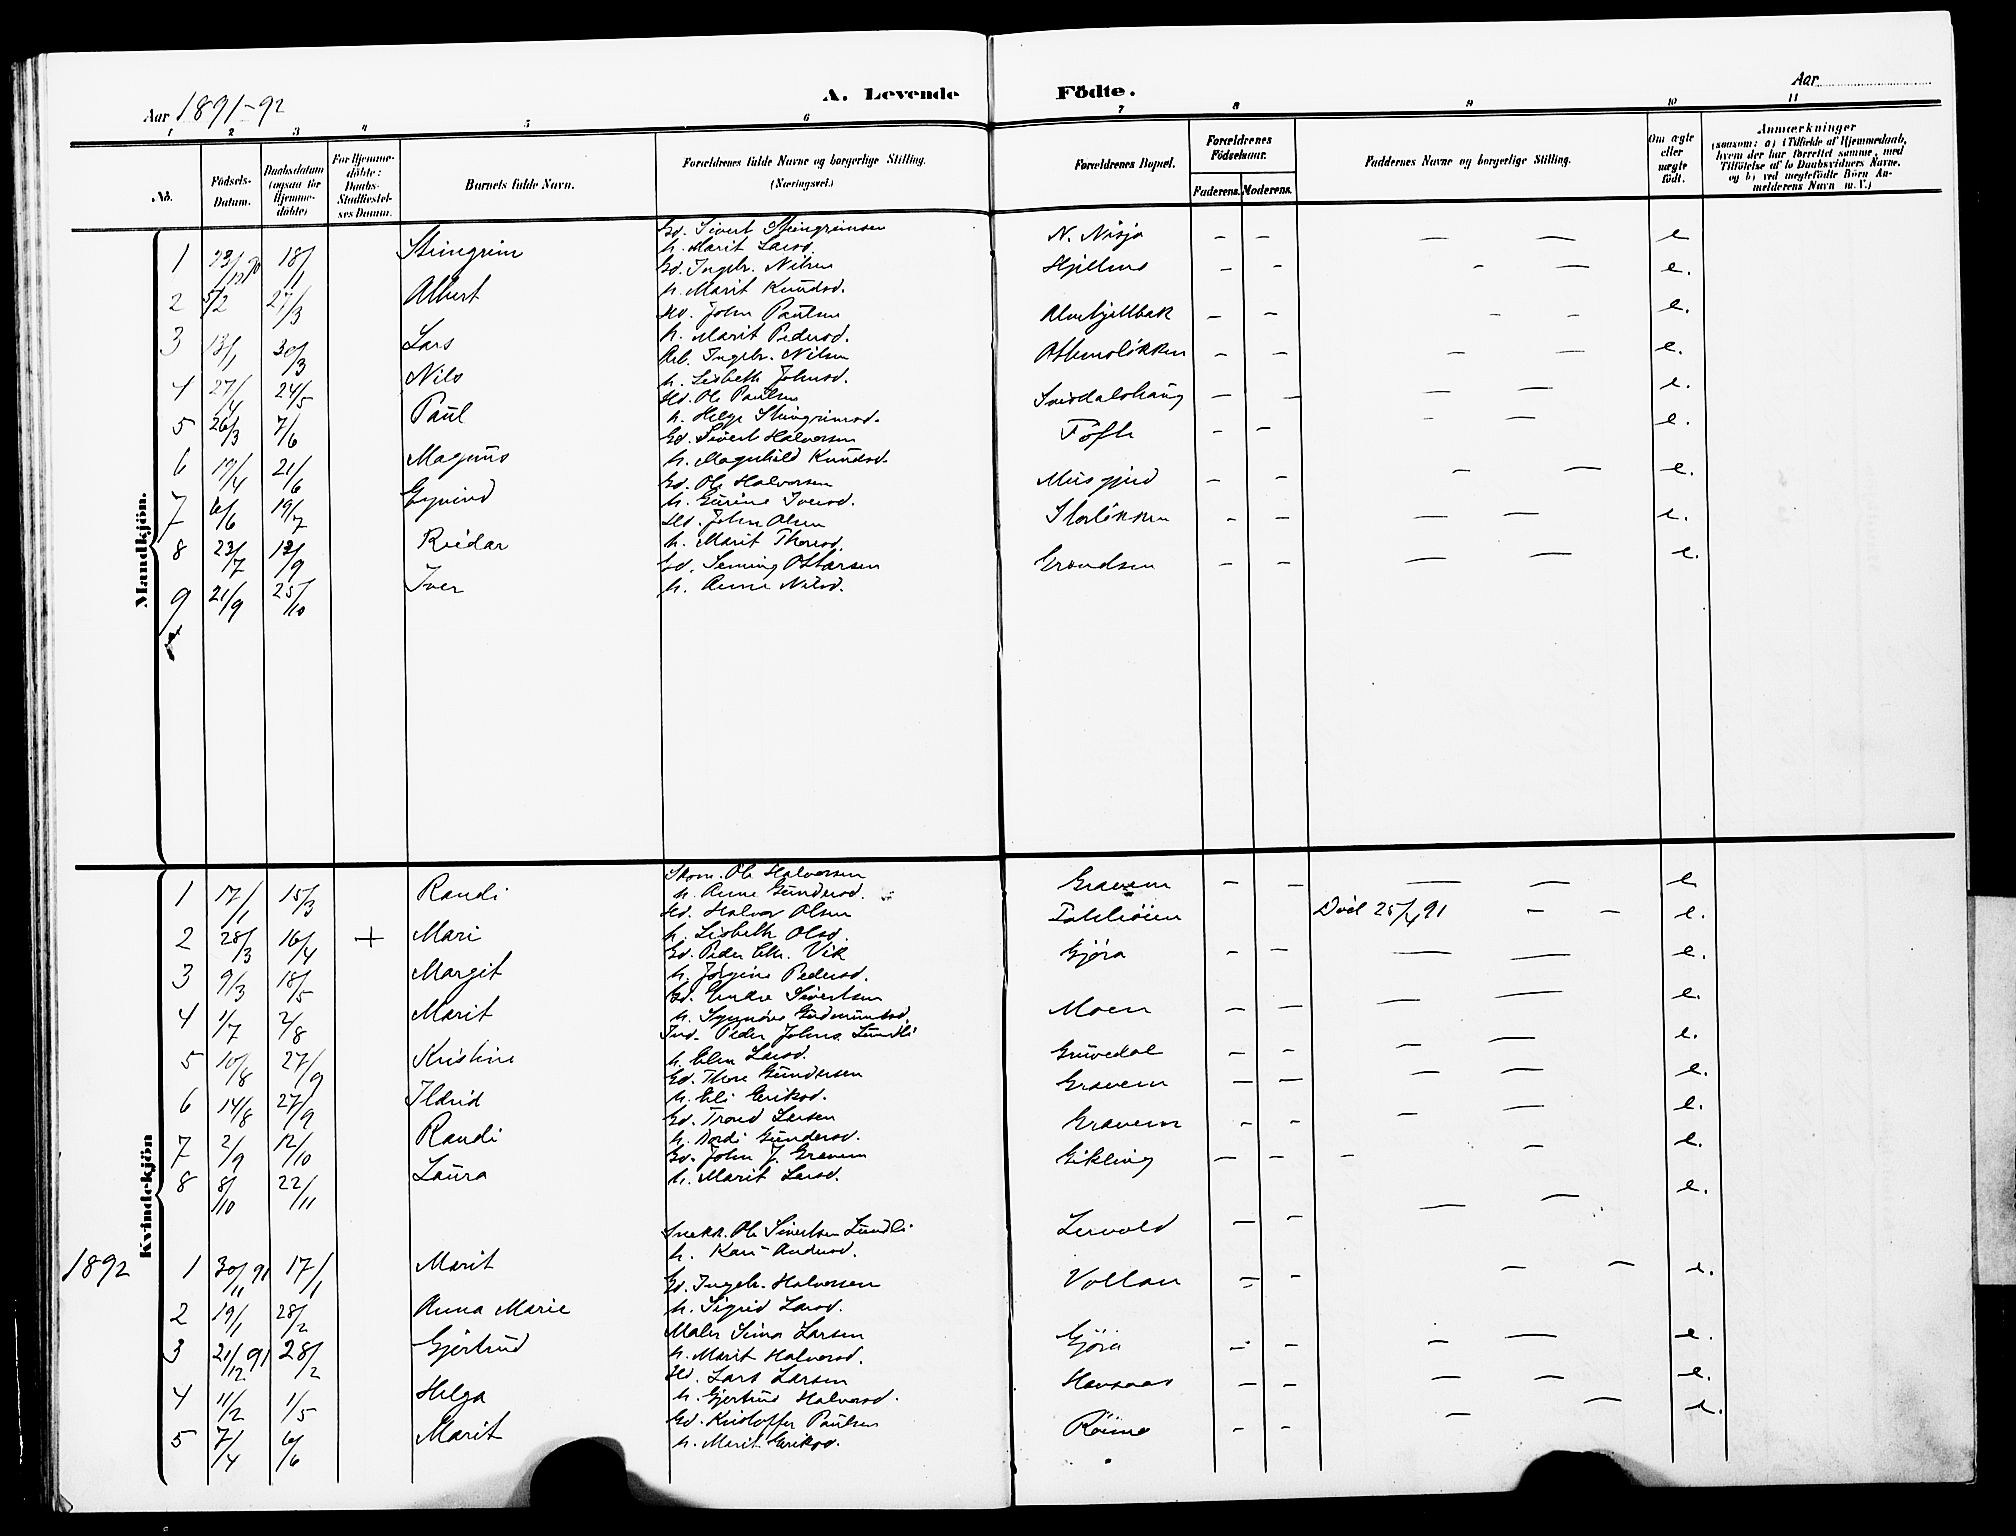 Aar 1891-92
A. Levende Födte.
Aar
1 2 3 4 5 6 7 8 9 10 11
No.
Födsels-Datum.
Daabsdatum (ogsaa for Hjemmedöbte)
For Hjemmedöbte: Daabs-Stadfestelses Datum.
Barnets fulde Navn.
Forældrenes fulde Navne og borgerlige Stilling. (Næringsvei.)
Forældrenes Bopæl.
Forældrenes Födselsaar.
Faderens. Moderens.
Faddernes Navne og borgerlige Stilling.
Om ægte eller uægte födt.
Anmærkninger
(saasom: a) i Tilfælde af Hjemmedaab, hvem der har forrettet samme, med Tilföielse af to Daabsvidners Navne, og b) ved uægtefödte Börn Anmelderens Navn m. V.)
Mandkjön.
1 23/12 90 18/1 Steingrim Gd. Sivert Steingrimsen h. Marit Larsd. N. Nisja – – — — e
2 5/2 27/3 Albert Gd. Ingebr. Nilsen h. Marit Knudsd. – – - — e.
3 13/1 30/3 Lars Hd. John Paulsen h. Marit Pedersd. – – – – e.
4 27/4 24/5 Nils Arb. Ingebr. Nilsen h. Lisbeth Johnsd. – – – — e.
5 26/3 7/6 Paul Hd. Ole Paulsen h. Helge Steingrimsd. – – – — e.
6 19/4 21/6 Magnus Gd. Sivert Halvorsen h. Magnhild Knudsd. Tofte – – – — e.
7 6/6 19/7 Eyvind Gd. Ole Halvorsen h. Gurine Iversd. Musgjerd – – – — e.
8 23/7 13/9 Reidar Hd. John Olsen h. Marit Thoresd. Storløkken – – — — e.
9 21/9 25/10 Iver Gd. Seming Ottarsen h. Anne Nilsd. Grøndsen – – — — e.
Kvindekjön
1 17/1 15/3 Randi Skom. Ole Halvorsen h. Anne Gundersd. Gravem – – — — e
2 28/3 16/4 + Mari Hd. Halvor Olsen h. Lisbeth Olsd. Død 25/4 91 – – e.
3 9/3 18/5 Margit Gd. Peder Chr. Vik h. Jørgine Pedersd. Gjøra – – — — e.
4 1/7 2/8 Marit Gd. Endre Sivertsen h. Synnøve Gudmundsd. Moen – – — — e.
5 10/8 27/9 Kristine Ind. Peder Johns. Lundli h. Elen Larsd. Gruvedal – – – — e.
6 14/8 27/9 Ildrid Gd. Thore Gundersen h. Eli Eriksd. Gravem – – — — e.
7 2/9 12/10 Randi Gd. Trond Larsen h. Dordi Gundersd. Gravem – – – — e.
8 8/10 22/11 Laura Gd. John J. Gravem h. Marit Larsd. Gikling – – – – e.
1892 1 30/11 91 17/1 Marit Snekk. Ole Sivertsen Lundli h. Kari Andersd. Lervold – – — — e.
2 19/1 28/2 Anna Marie Gd. Ingebr. Halvorsen h. Sigrid Larsd. Vollan – – – – e.
3 21/12 91 28/2 Gjertrud Maler Simon Larsen h. Marit Halvorsd. Gjøra – – – — e.
4 11/2 1/5 Helga Hd. Lars Larsen h. Gjertrud Halvorsd. Hovsaas – – – — e.
5 7/4 6/6 Marit Gd. Kristoffer Paulsen h. Marit Eriksd. Röimo – – – — e.